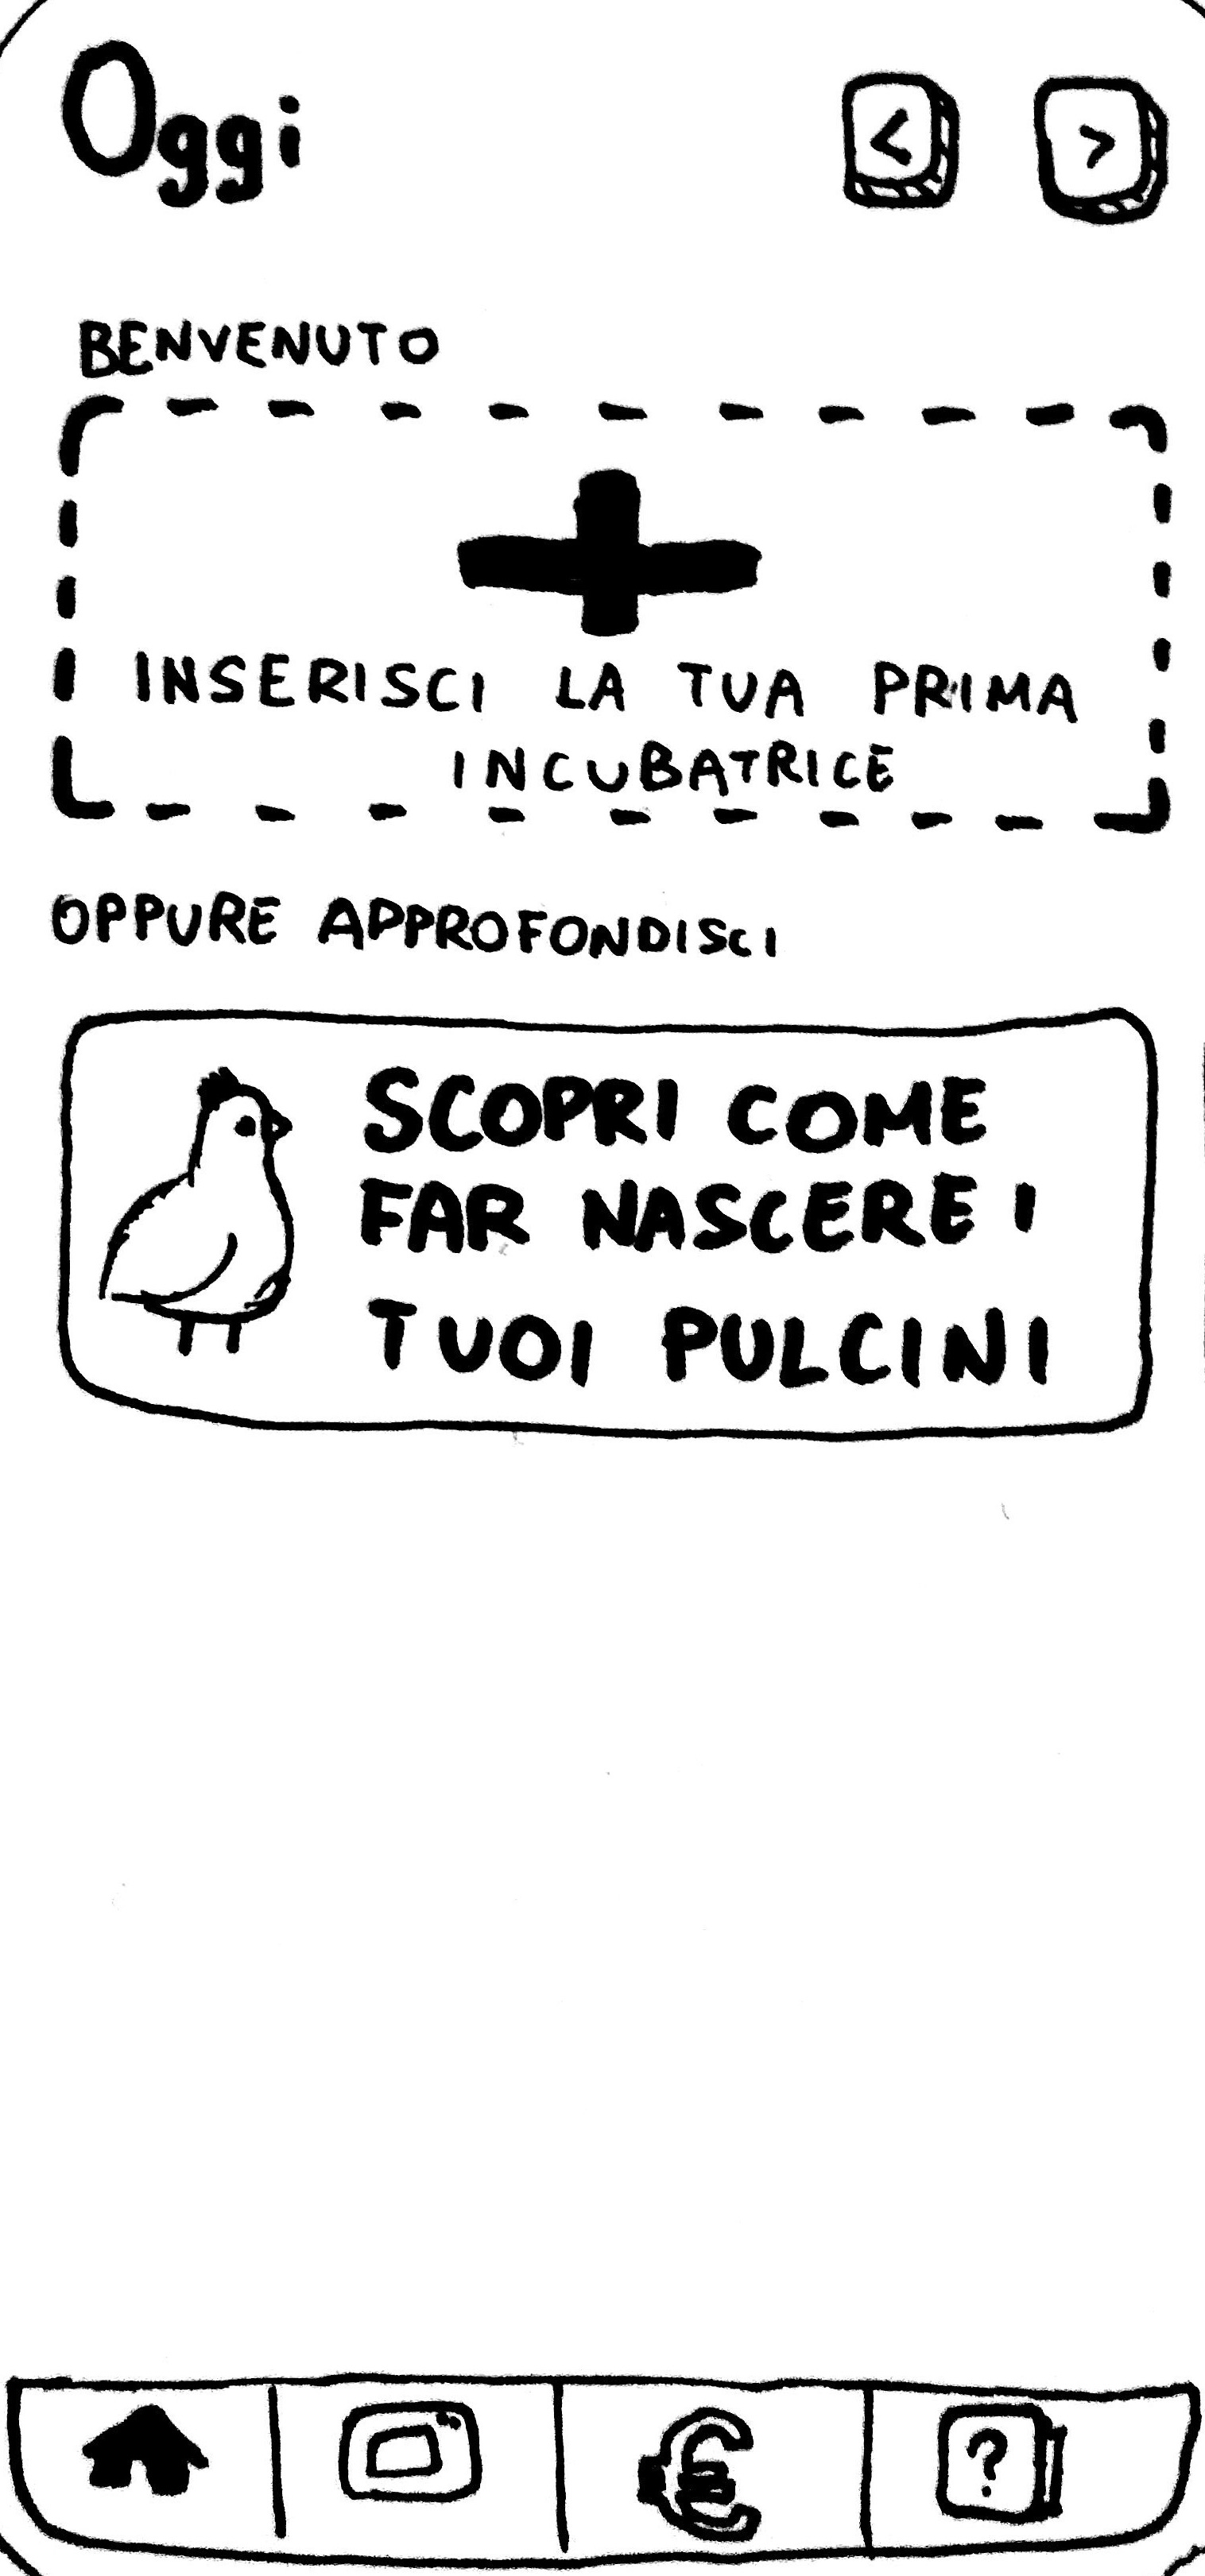 Oggi
< >
BENVENUTO
+
INSERISCI LA TUA PRIMA
INCUBATRICE
OPPURE APPROFONDISCI
SCOPRI COME
FAR NASCERE I
TUOI PULCINI
€ ?